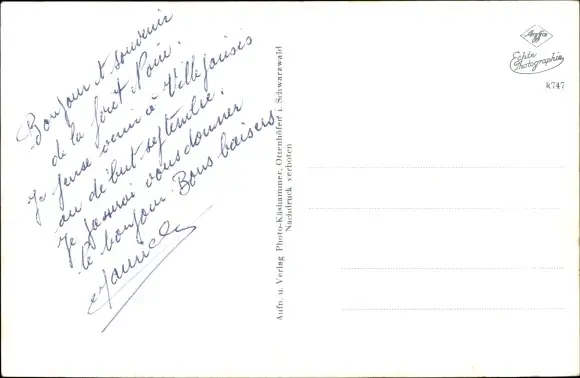 Bonjour et souvenir
de la forêt Noire.
Je pense venir à Villeparisis
au début septembre.
Je passerai vous donner
le bonjour. Bons baisers.
Agfa
Echte
Photographie
K747
Aufn. u. Verlag Photo-Käshammer, Ottenhöfen i. Schwarzwald
Nachdruck verboten